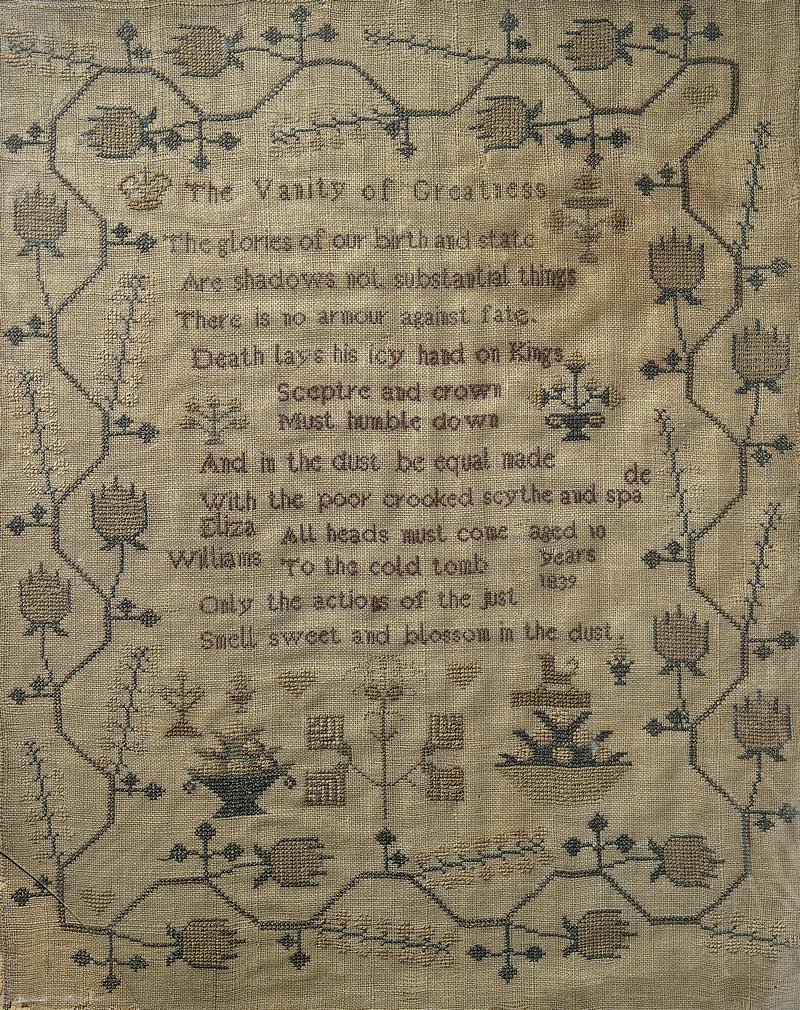 The Vanity of Greatness
The glories of our birth and state
Are shadows not substantial things
There is no armour against fate.
Death lays his icy hand on Kings
Sceptre and crown
Must humble down
And in the dust be equal made
With the poor crooked scythe and spa
de
Eliza
Williams
All heads must come
To the cold tomb
aged 10
years
1839
Only the actions of the just
Smell sweet and blossom in the dust.